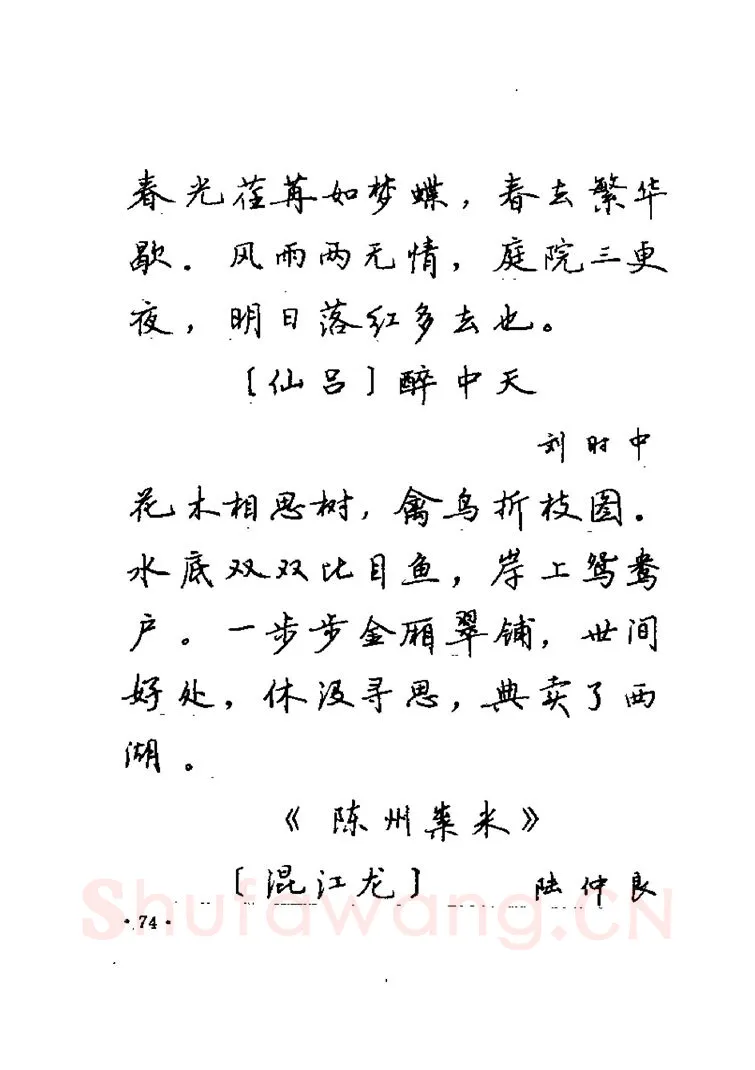 春光荏苒如梦蝶，春去繁华
歇．风雨两无情，庭院三更
夜，明日落红多去也。
［仙吕］醉中天
刘时中
花木相思树，禽鸟折枝图．
水底双双比目鱼，岸上鸳鸯
户。一步步金厢翠铺，世间
好处，休没寻思，典卖了西
湖。
《陈州粜米》
［混江龙］ 陆仲良
Shufawang.CN
·74·